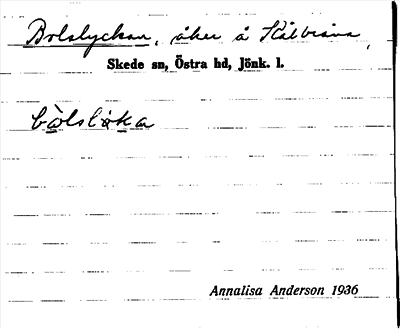 Bolslyckan, åker å Kålbränna,
Skede sn, Östra hd, Jönk. l.
bòlslỳka
Annalisa Anderson 1936